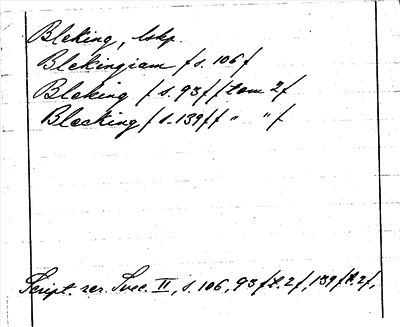 Bleking, lskp.
Blekingiam / s. 106 /
Bleking / s. 93 / / tom 2 /
Blecking / s. 139 / / " " /
Script. rer. Svec. II, s. 106, 93 / t. 2 /, 139 / t. 2 /,